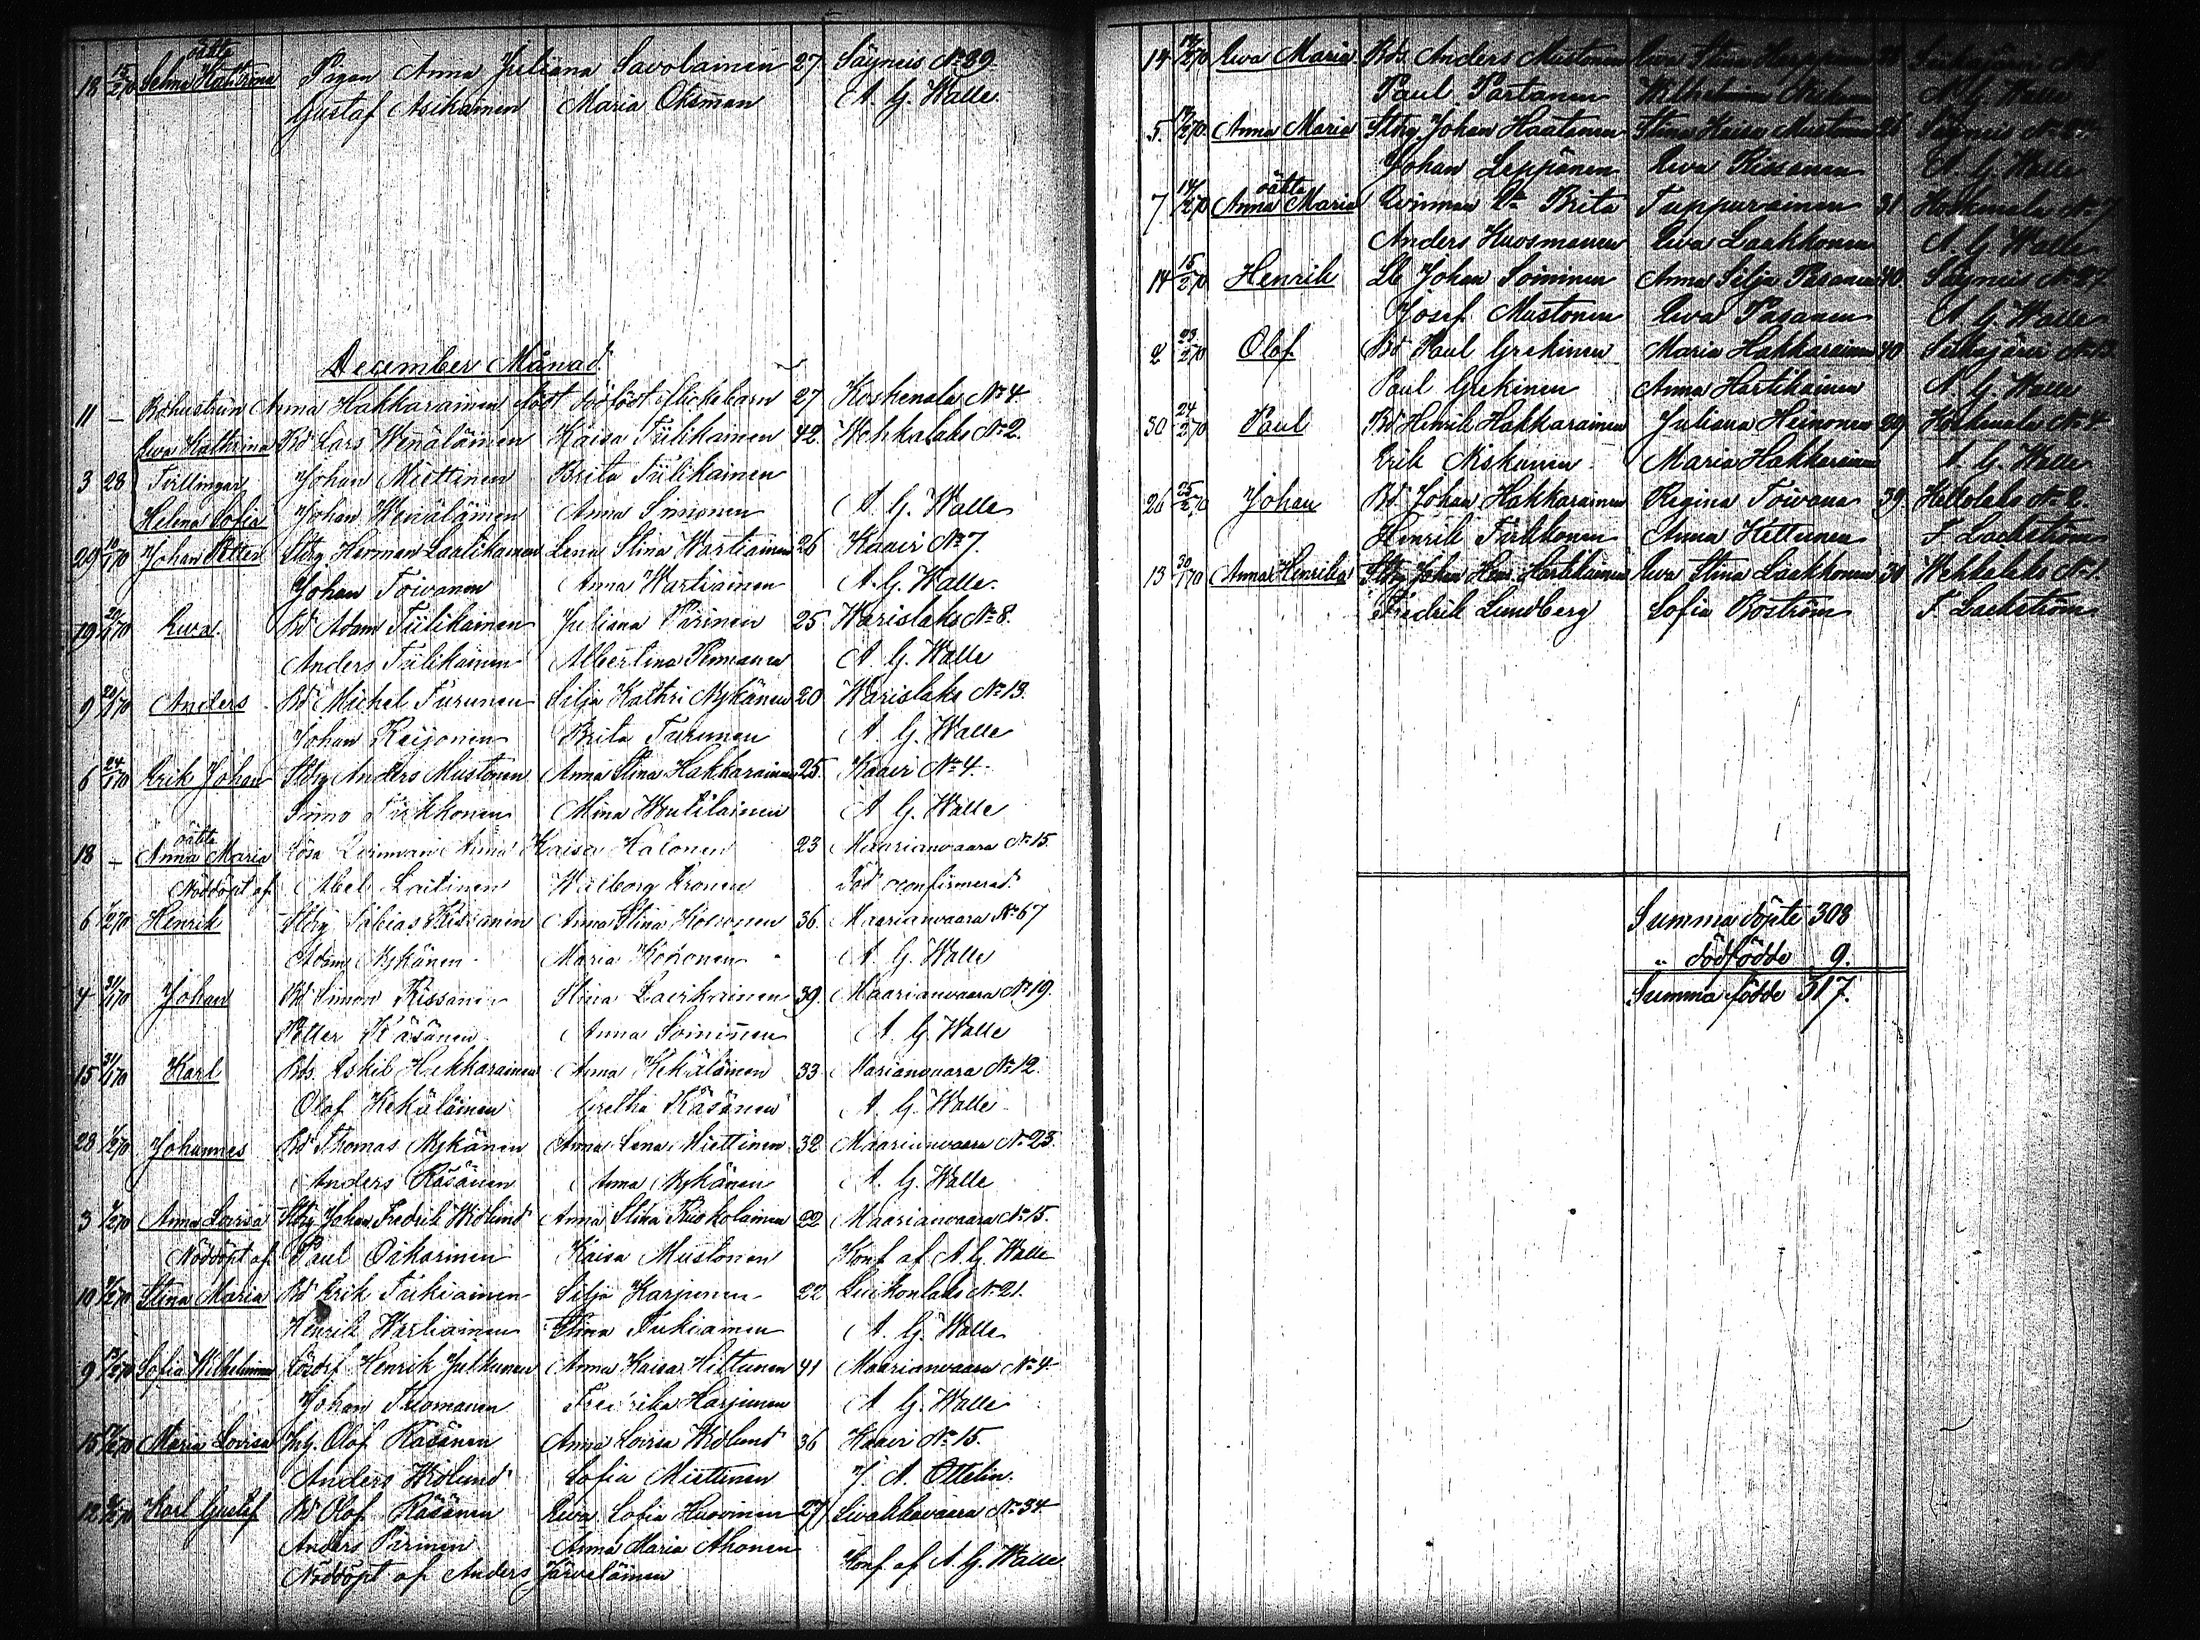 oäkta
18 15/2 70 Selma Kathrina Pigan Anna Juliana Savolainen 27 Säyneis No 89.
Gustaf Asikainen Maria Oksman A. G. Walle.
December Månad.
11 — Bohustrun Anna Hakkarainen födt dödfödt flickebarn 27 Koskenala No 4
Ewa Kathrina Bd Lars Wenäläinen Kaisa Tiilikainen 42. Wehkalaks No 2.
3 28 Tvillingar Johan Miettinen Brita Tiilikainen
Helena Sofia Johan Wenäläinen Anna Simonen A. G. Walle
29 1/1 70 Johan Petter Stbg Herman Laatikainen Lena Stina Wartiainen 26 Kaavi No 7.
Johan Toivanen Anna Wartiainen A. G. Walle.
19 20/1 70 Ewa Bd Adam Tiilikainen Juliana Pärinen 25 Warislaks No 8.
Anders Tiilikainen Albertina A. G. Walle
9 70 Anders Bd Michel Turunen Silja Kathri Nykänen 20 Warislaks No 13.
Johan Keijonen Brita Turunen A. G. Walle
6 24/1 70 Erik Johan Stbg Anders Mustonen Anna Stina Hakkarainen 25. Kaavi No 4.
Simo Tirkkonen Mina Woutilainen A. G. Walle
oäkta
18 — Anna Maria Lösa Qvinnan Anna Kaisa Halonen 23 Maarianvaara No 15.
Nöddöpt af Abel Laitinen Walborg Död oconfirmerad.
6 /2 70 Henrik Stbg Tobias Rissanen Anna Stina Kokonen 36. Maarianvaara No 67
Adam Nykänen Maria Kokonen A. G. Walle
4 31/1 70 Johan Bd Simon Rissanen Stina Laurikainen 39. Maarianvaara No 19.
Petter Räsänen Anna Soininen A. G. Walle
15 31/1 70 Karl Bds. Eskil Hakkarainen Anna Kekäläinen 33 Marianvaara No 12.
Olof Kekäläinen Gretha Räsänen A. G. Walle
28 1/2 70 Johannes Bd Thomas Nykänen Anna Lena Miettinen 32 Maarianvaara No 23.
Anders Räsänen Anna Nykänen A. G. Walle
3 /2 70 Anna Lovisa Stbg Johan Fredrik Widlund Anna Stina Ruokolainen 22 Maarianvaara No 15.
Nöddöpt af Paul Oskarinen Kaisa Mustonen Konf af A. G. Walle
10 /2 70 Stina Maria Bd Erik Tukiainen Silja Karjunen 22 Luikonlaks No 21.
Henrik Wartiainen Stina Tukiainen A. G. Walle
9 /2 70 Sofia Wilhelmina Lösdrf Henrik Julkunen Anna Kaisa Hiltunen 41 Maarianvaara No 4
Johan Tuomanen Fredrika Harjunen A. G. Walle
15 /2 70 Maria Lovisa Inh. Olof Räsänen Anna Lovisa Widlund 36 Kaavi No 15.
Anders Widlund Sofia Miettinen J. A. Ottelin.
12 /2 70 Karl Gustaf Bd Olof Räsänen Ewa Sofia Huovinen 27 Siwakkavaara No 34
Anders Pärinen Anna Maria Ahonen
Nöddöpt af Anders Järveläinen Konf af A. G. Walle
14 /2 70 Ewa Maria Bds. Anders Mustonen Ewa Stina
Paul Partanen Wilhelmina A. G. Walle
5. /2 70 Anna Maria Stbg Johan Haatanen Stina Kaisa Mustonen 26 Säyneis No
Johan Leppänen Ewa Rissanen A. G. Walle
oäkta
7 14/2 70 Anna Maria Qvinnan Brita Tuppurainen 31 Koskenala No 7
Anders Kuosmanen Ewa Laakkonen A. G. Walle
14 15/2 70 Henrik Lb Johan Soininen Anna Silja Pasanen 40. Säyneis No 87
Josef Mustonen Ewa Pasanen A. G. Walle
2 23/2 70 Olof Bd Paul Grekinen Maria Hakkarainen 40 Siikajärvi No
Paul Grekinen Anna Hartikainen A. G. Walle
30 24/2 70 Paul Bd Henrik Hakkarainen Juliana Heinonen 29 Koskenala No 4
Erik Niskanen Maria Hakkarainen A. G. Walle
26 25/2 70 Johan Bd Johan Hakkarainen Regina Toivana 39. No 2.
Henrik Tirkkonen Anna Kettunen F. Lackström
13 30/1 70 Anna Henrika Stbg Johan Henr. Hartikainen Ewa Stina Laakkonen 30 Wehkalaks No 1.
Fredrik Lundberg Sofia Boström F. Lackström
Summa döpte 308
" dödfödde 9.
Summa födde 317.